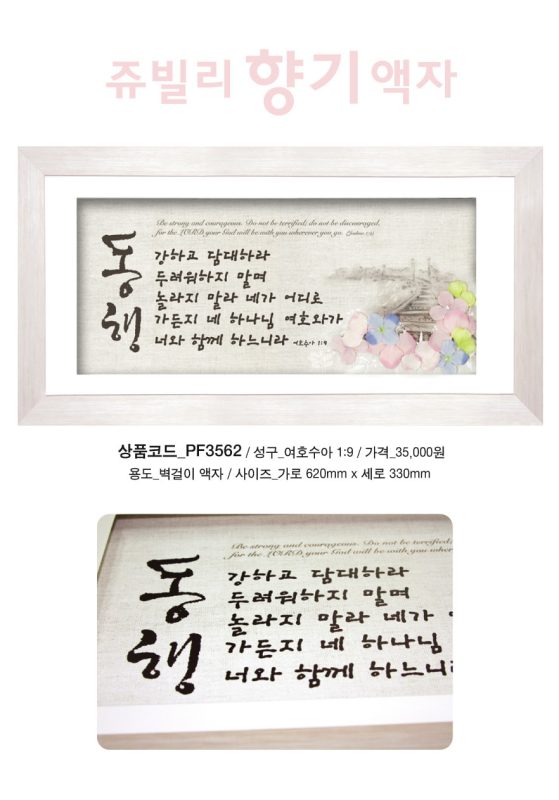 쥬빌리 향기 액자
Be strong and courageous. Do not be terrified; do not be discouraged,
for the LORD your God will be with you wherever you go. (Joshua 1:9)
동행
강하고 담대하라
두려워하지 말며
놀라지 말라 네가 어디로
가든지 네 하나님 여호와가
너와 함께 하느니라 여호수아 1:9
상품코드_PF3562 / 성구_여호수아 1:9 / 가격_35,000원
용도_벽걸이 액자 / 사이즈_가로 620mm x 세로 330mm
Be strong and courageous. Do not be terrified;
for the LORD your God will be with you wherev
동행
강하고 담대하라
두려워하지 말며
놀라지 말라 네가
가든지 네 하나님
너와 함께 하느니라